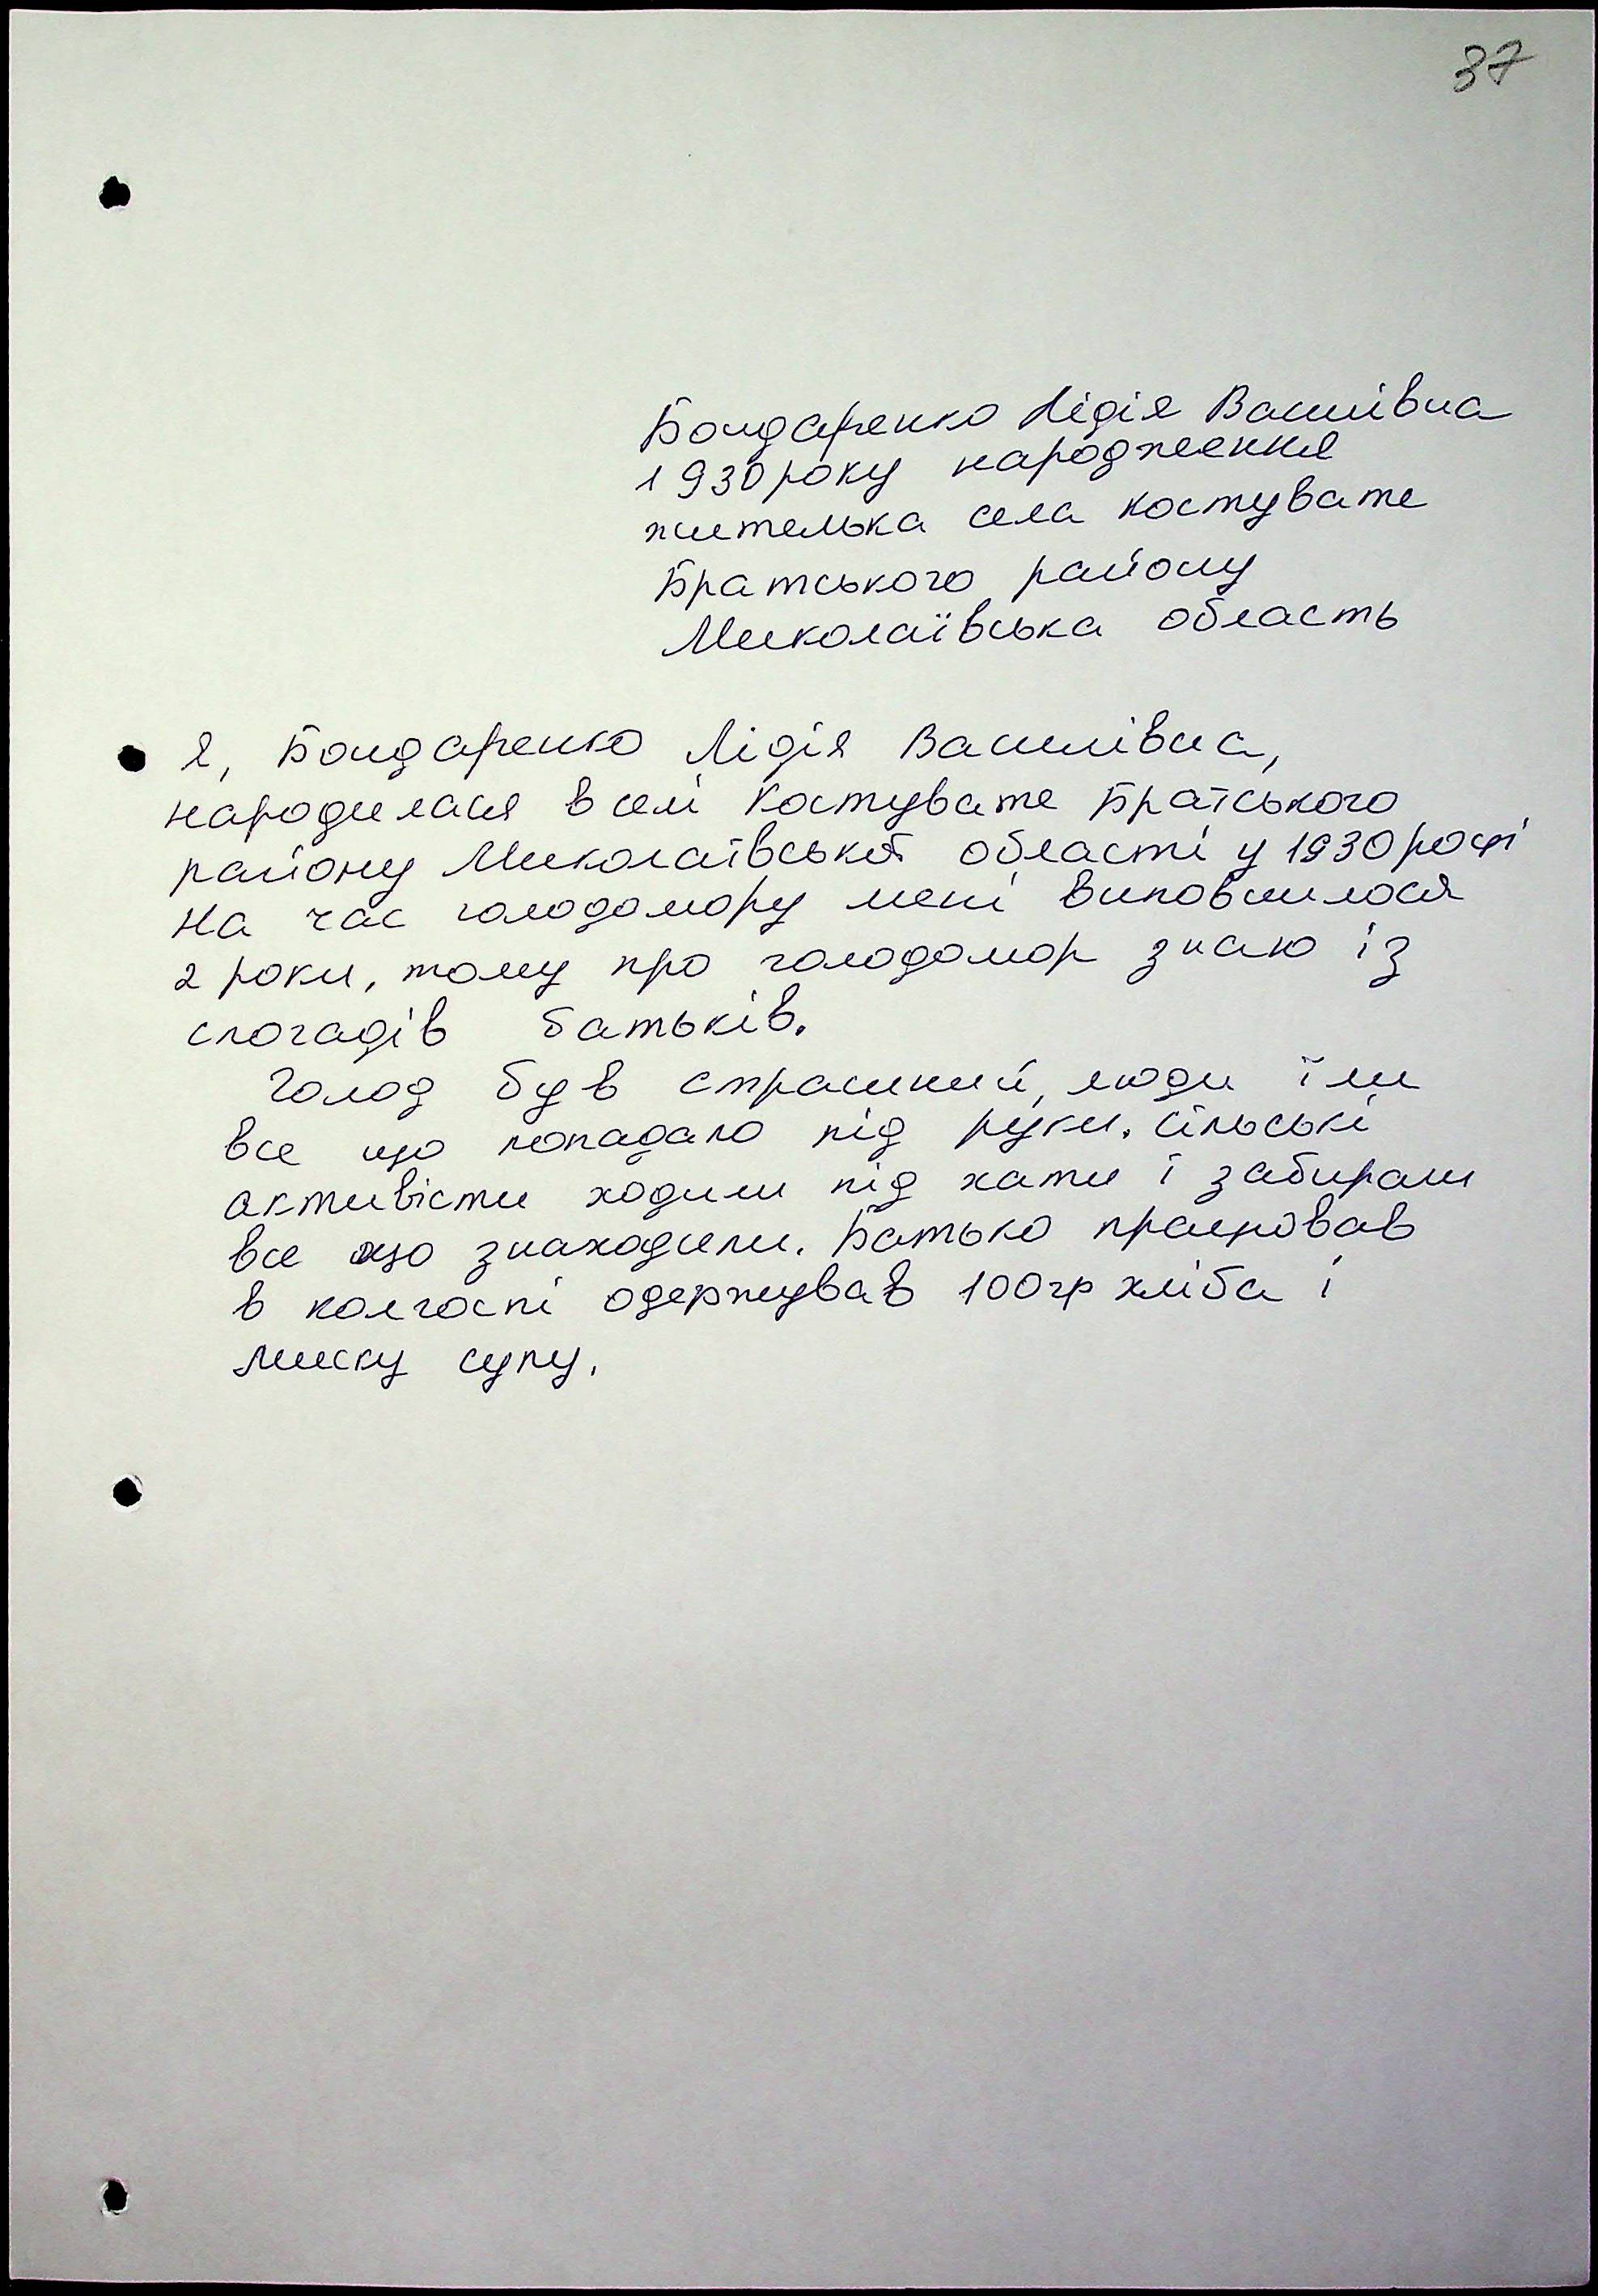 37
Бондаренко Лідія Василівна
1930 року народження
жителька села Костувате
Братського району
Миколаївська область
Я, Бондаренко Лідія Василівна,
народилася в селі Костувате Братського
району Миколаївської області у 1930 році
На час голодомору мені виповнилося
2 роки, тому про голодомор знаю із
спогадів батьків.
Голод був страшний, люди їли
все що попадало під руки. Сільські
активісти ходили під хати і забирали
все що знаходили. Батько працював
в колгоспі одержував 100 гр хліба і
миску супу.